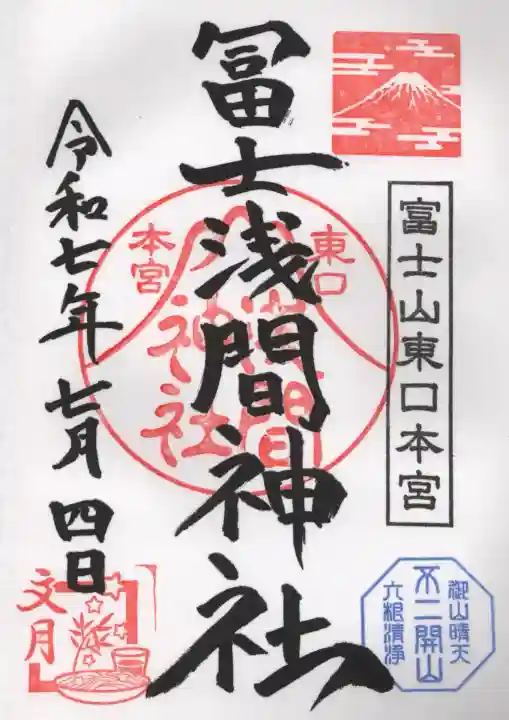 富士山東口本宮
冨士浅間神社
東口
本宮
浅間
神社
令和七年七月四日
御山晴天
不二開山
六根清浄
文月